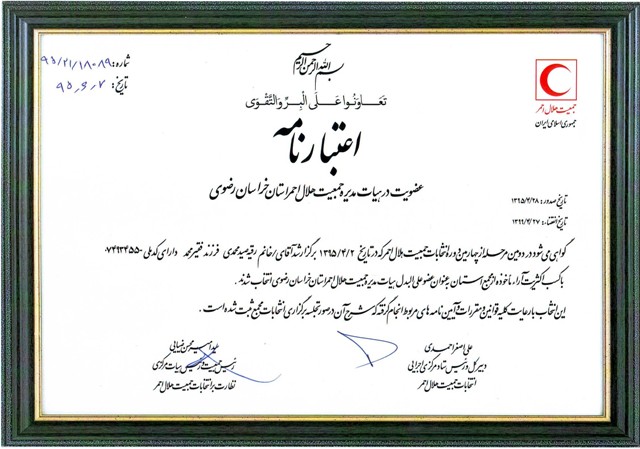 بسم الله الرحمن الرحیم
شماره: ۹۵/۲۱/۱۸۰۸۹
تاریخ: ۹۵,۶,۷
جمعیت هلال احمر
جمهوری اسلامی ایران
تَعاوَنُوا عَلَی الْبِرِّ وَالتَّقْوی
اعتبارنامه
عضویت در هیات مدیره جمعیت هلال احمر استان خراسان رضوی
تاریخ صدور: ۱۳۹۵/۴/۲۸
تاریخ انقضاء: ۱۳۹۹/۴/۲۷
گواهی می شود در دومین مرحله از چهارمین دوره انتخابات جمعیت هلال احمر که در تاریخ ۱۳۹۵/۴/۲ برگزار شد آقای/خانم رقیه صید محمدی فرزند فقیر محمد دارای کد ملی ۰۷۴۹۳۴۵۵۰
با کسب اکثریت آراء ماخوذه از مجمع استان به عنوان عضو علی البدل هیات مدیره جمعیت هلال احمر استان خراسان رضوی انتخاب شدند.
این انتخاب با رعایت کلیه قوانین و مقررات و آیین نامه های مربوط انجام گرفته که شرح آن در صورتجلسه برگزاری انتخابات مجمع ثبت شده است.
علی اصغر احمدی
دبیرکل و رئیس ستاد مرکزی اجرایی
انتخابات جمعیت هلال احمر
سید امیر محسن ضیایی
رئیس جمعیت و رئیس هیات مرکزی
نظارت بر انتخابات جمعیت هلال احمر